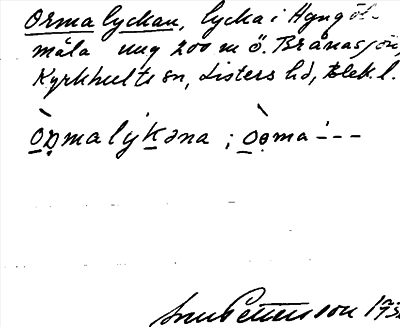 Ormalyckan, lycka i Hyngöl-
måla ung 200 m ö. Brånasjön,
Kyrkhults sn, Listers hd, Blek. l.
òρ̣malýkəna ; òọma---
Pettersson 193